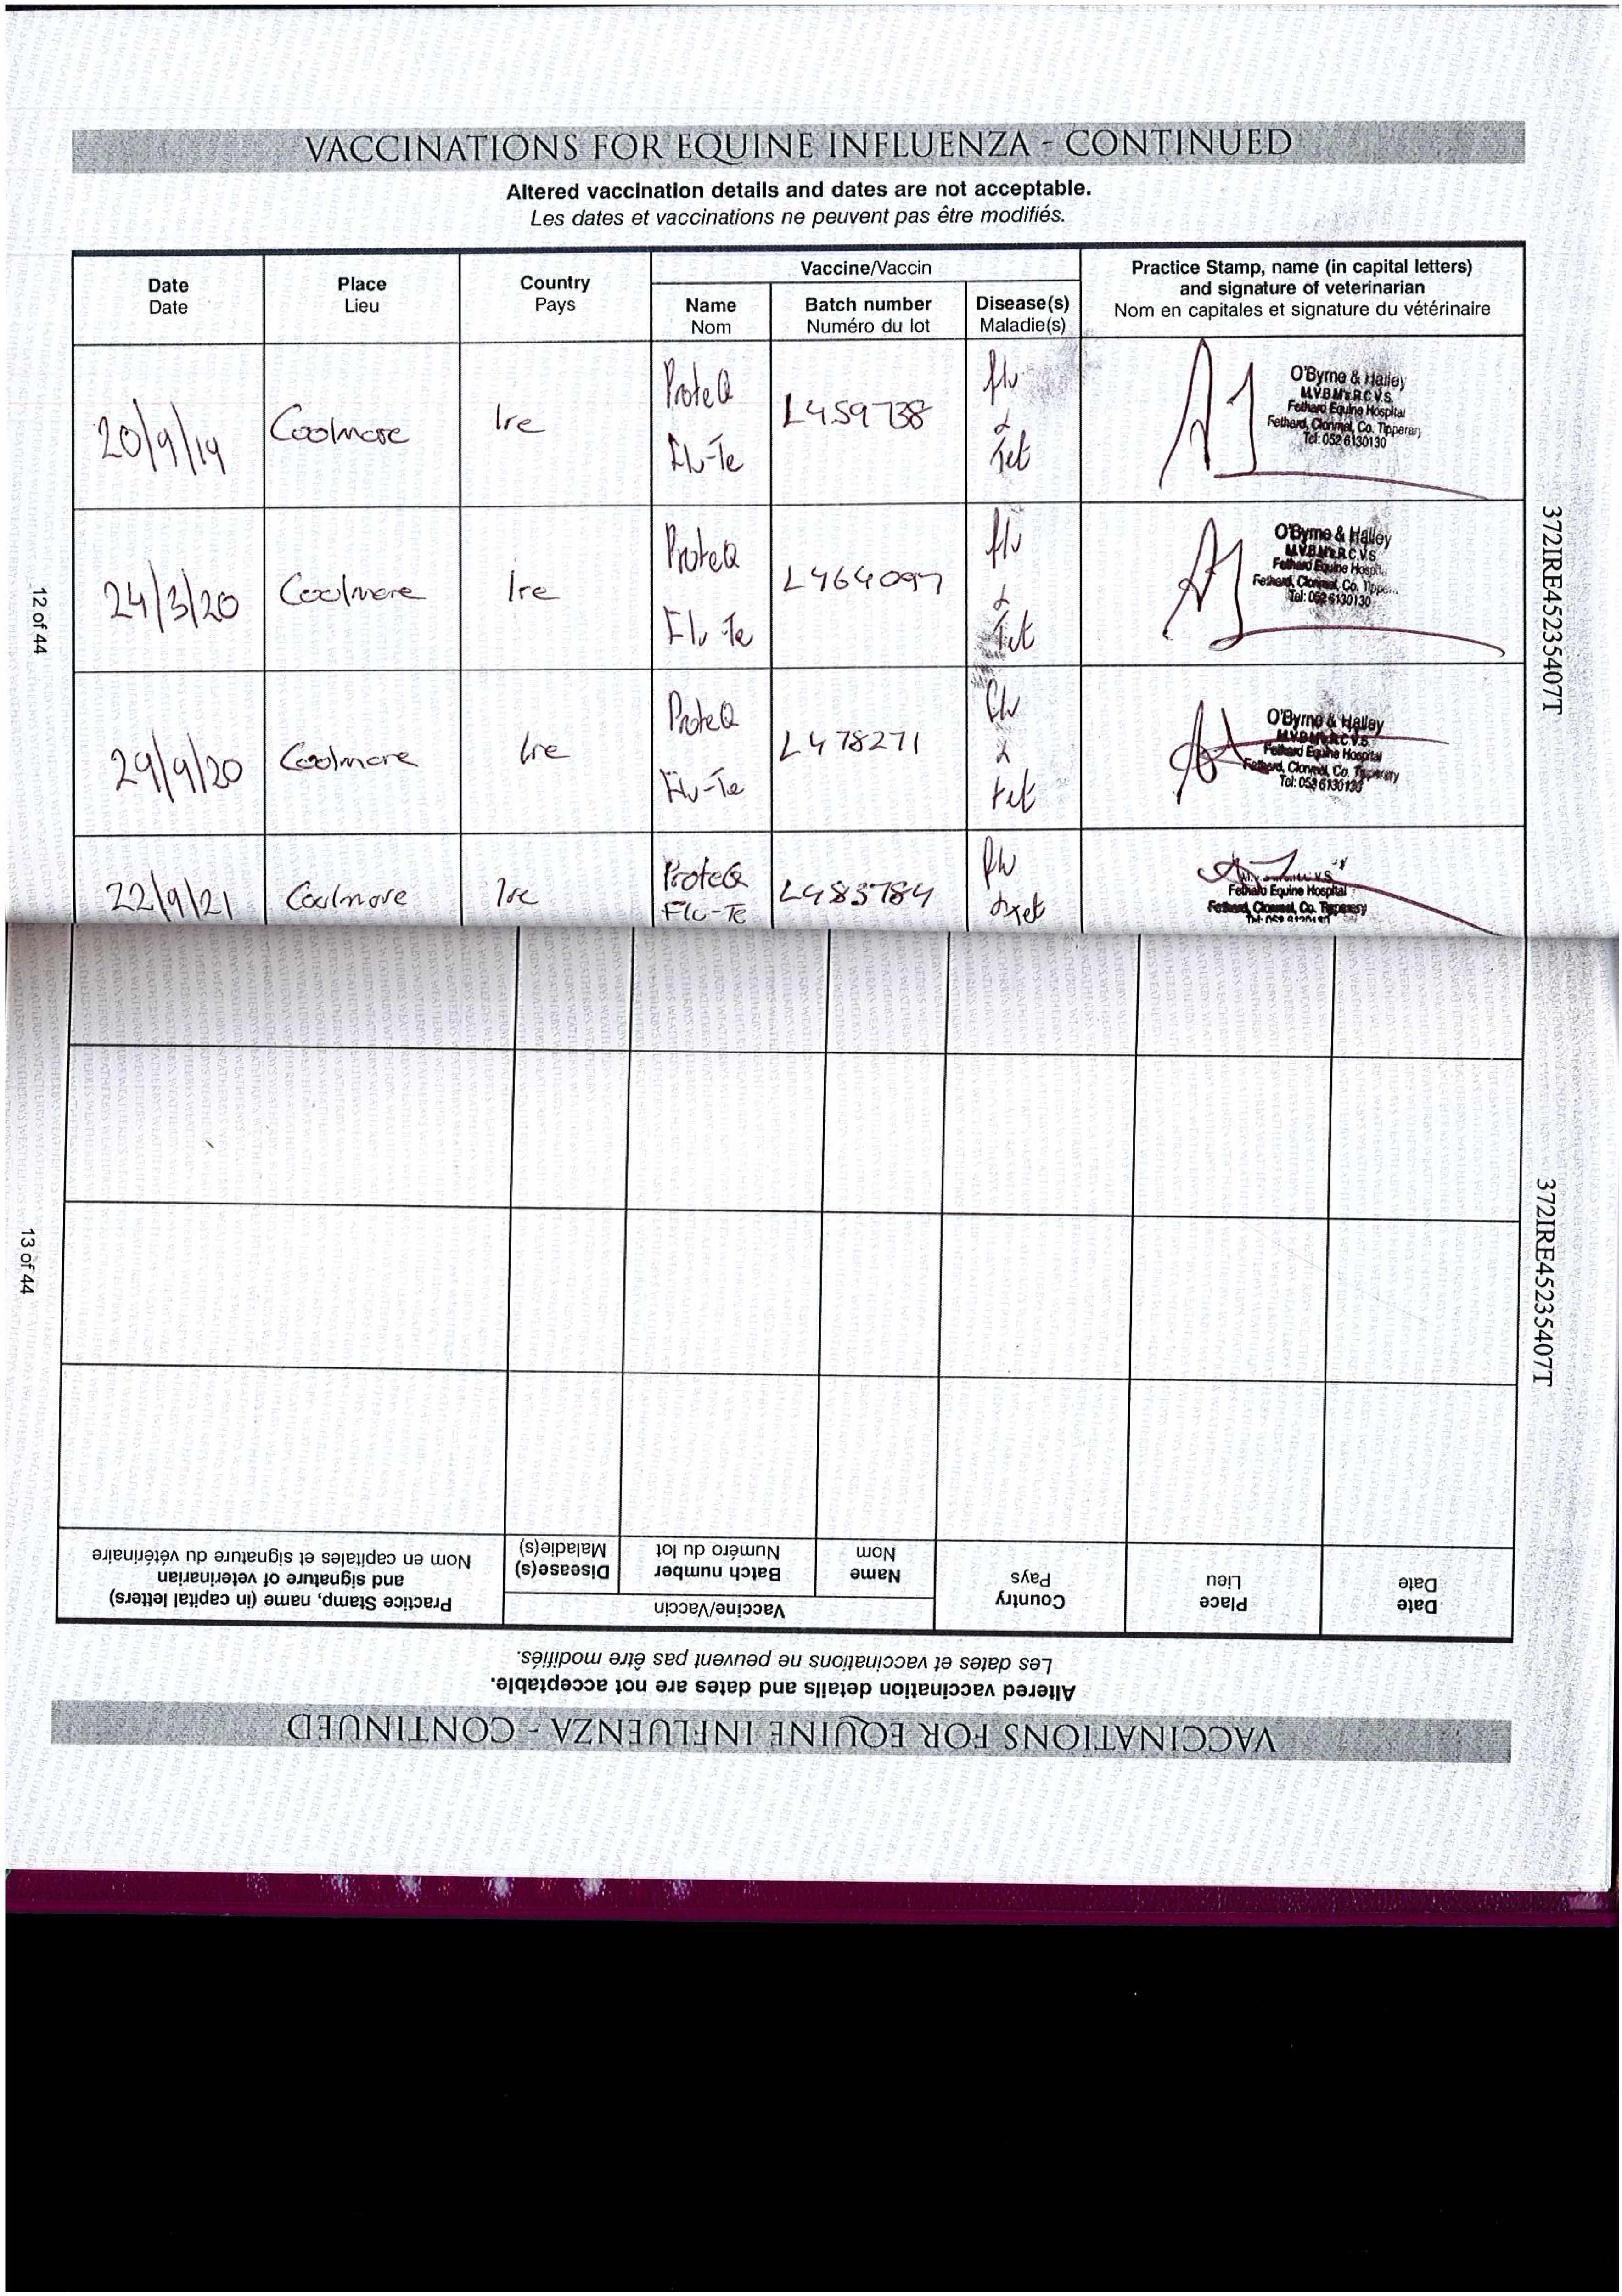 VACCINATIONS FOR EQUINE INFLUENZA - CONTINUED
Altered vaccination details and dates are not acceptable.
Les dates et vaccinations ne peuvent pas être modifiés.
Date
Date
Place
Lieu
Country
Pays
Vaccine/Vaccin
Name
Nom
Batch number
Numéro du lot
Disease(s)
Maladie(s)
Practice Stamp, name (in capital letters)
and signature of veterinarian
Nom en capitales et signature du vétérinaire
20/9/19
Coolmore
Ire
ProteQ
Flu-Te
L459738
flu
&
Tet
O'Byrne & Halley
M.V.B M's R.C.V.S.
Fethard Equine Hospital
Fethard, Clonmel, Co. Tipperary
Tel: 052 6130130
24/3/20
Coolmore
Ire
ProteQ
Flu-Te
flu
&
Tet
O'Byrne & Halley
M.V.B M's R.C.V.S
Fethard Equine Hospit
Fethard, Clonmel, Co. Tippe
Tel: 052 6130130
29/9/20
Coolmore
Ire
ProteQ
Flu-Te
L478271
flu
&
tet
O'Byrne & Halley
M.V.B M's R.C.V.S.
Fethard Equine Hospital
Fethard, Clonmel, Co. Tipperary
Tel: 052 6130130
22/9/21
Coolmore
Ire
ProteQ
Flu-Te
L483784
flu
& tet
Fethard Equine Hospital
Fethard, Clonmel, Co. Tipperary
12 of 44
372IRE45235407T
13 of 44
372IRE45235407T
VACCINATIONS FOR EQUINE INFLUENZA - CONTINUED
Altered vaccination details and dates are not acceptable.
Les dates et vaccinations ne peuvent pas être modifiés.
Date
Date
Place
Lieu
Country
Pays
Vaccine/Vaccin
Name
Nom
Batch number
Numéro du lot
Disease(s)
Maladie(s)
Practice Stamp, name (in capital letters)
and signature of veterinarian
Nom en capitales et signature du vétérinaire